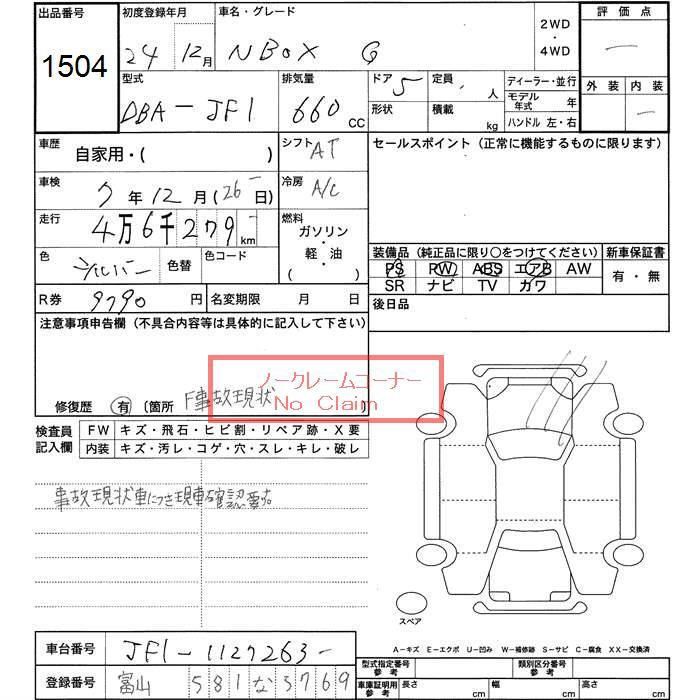 出品番号
1504
初度登録年月
24 12月
車名・グレード
N BOX G
2WD
・
4WD
評価点
―
外装 内装
―
型式
DBA-JF1
排気量
660 CC
ドア 5
形状
定員 人
積載 kg
ディーラー・並行
モデル年式 年
ハンドル 左・右
車歴
自家用・( )
シフト AT
車検
7年12月(26日)
冷房 A/C
走行
4万6千279 km
燃料
ガソリン
・
軽・油
・
( )
色
シルバー
色替
色コード
R券 9790円
名変期限 月 日
セールスポイント(正常に機能するものに限ります)
装備品(純正品に限り○をつけてください)
新車保証書
PS PW ABS エアB AW
SR ナビ TV カワ
有・無
後日品
注意事項申告欄(不具合内容等は具体的に記入して下さい)
ノークレームコーナー
No Claim
修復歴 有 〔箇所 F事故現状
検査員記入欄
FW キズ・飛石・ヒビ割・リペア跡・X要
内装 キズ・汚レ・コゲ・穴・スレ・キレ・破レ
事故現状車につき現車確認要す。
スペア
A-キズ E-エクボ U-凹み W-補修跡 S-サビ C-腐食 XX-交換済
車台番号 JF1-1127263-
登録番号 富山 581 な 3769
型式指定番号 参考
類別区分番号 参考
車庫証明用 参考
長さ cm
幅 cm
高さ cm